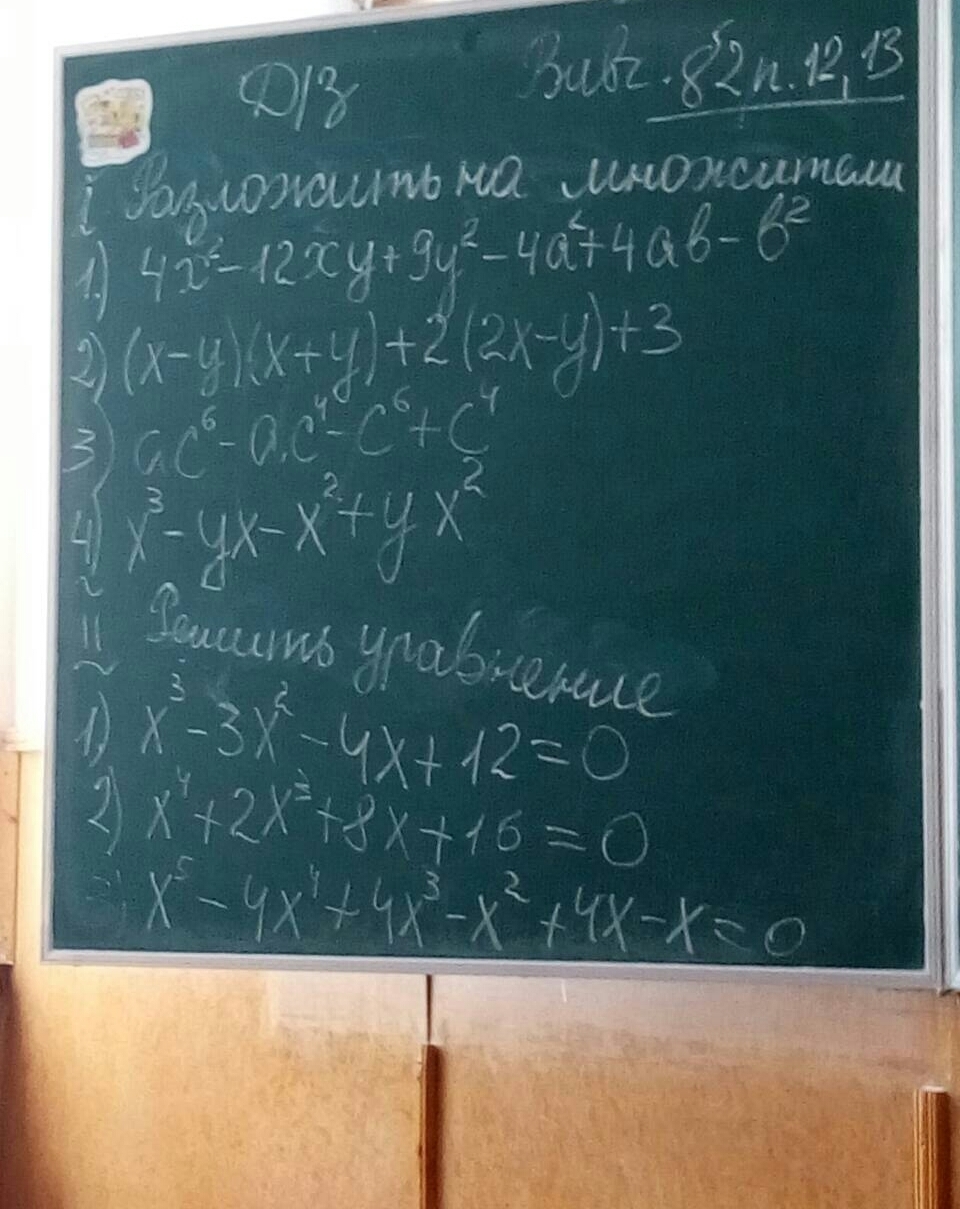 Д/З Вивч. §2 п. 12, 13
I Разложить на множители
1) 4x² - 12xy + 9y² - 4a² + 4ab - b²
2) (x-y)(x+y) + 2(2x-y) + 3
3) ac⁶ - ac⁴ - c⁶ + c⁴
4) x³ - yx - x² + yx²
II Решить уравнение
1) x³ - 3x² - 4x + 12 = 0
2) x⁴ + 2x³ + 8x + 16 = 0
3) x⁵ - 4x⁴ + 4x³ - x² + 4x - x = 0